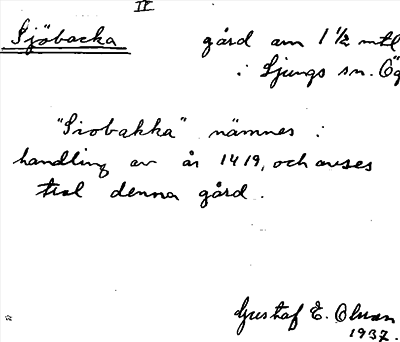 II
Sjöbacka gård om 1 1/2 mtl
i Ljungs sn. Ög
"Siobakka" nämnes i
handling av år 1419, och avses
tvl denna gård.
Gustaf E. Olman
1937.